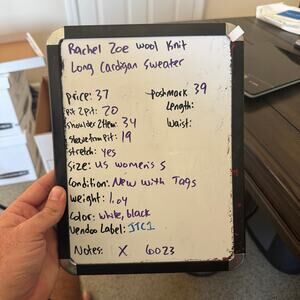 Rachel Zoe Wool Knit
Long Cardigan Sweater
Price: 37 Poshmark 39
Pit 2 Pit: 20 Length:
Shoulder 2 Hem: 34 Waist:
Sleeve from Pit: 19
Stretch: Yes
Size: US Women's S
Condition: New with Tags
Weight: 1.04
Color: White, black
Vendoo Label: JTC1
Notes: X 6023